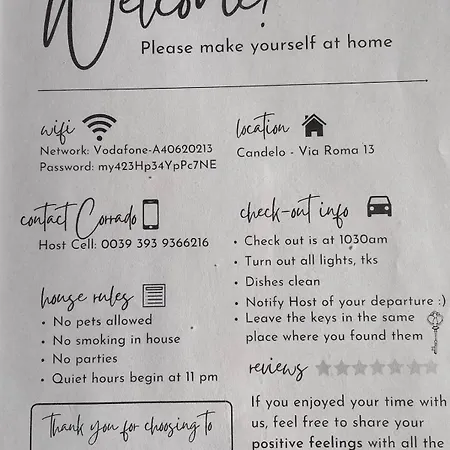 Welcome!
Please make yourself at home
wifi
Network: Vodafone-A40620213
Password: my423Hp34YpPc7NE
location
Candelo - Via Roma 13
contact Corrado
Host Cell: 0039 393 9366216
check-out info
• Check out is at 1030am
• Turn out all lights, tks
• Dishes clean
• Notify Host of your departure :)
• Leave the keys in the same
place where you found them
house rules
• No pets allowed
• No smoking in house
• No parties
• Quiet hours begin at 11 pm
reviews
If you enjoyed your time with
us, feel free to share your
positive feelings with all the
Thank you for choosing to